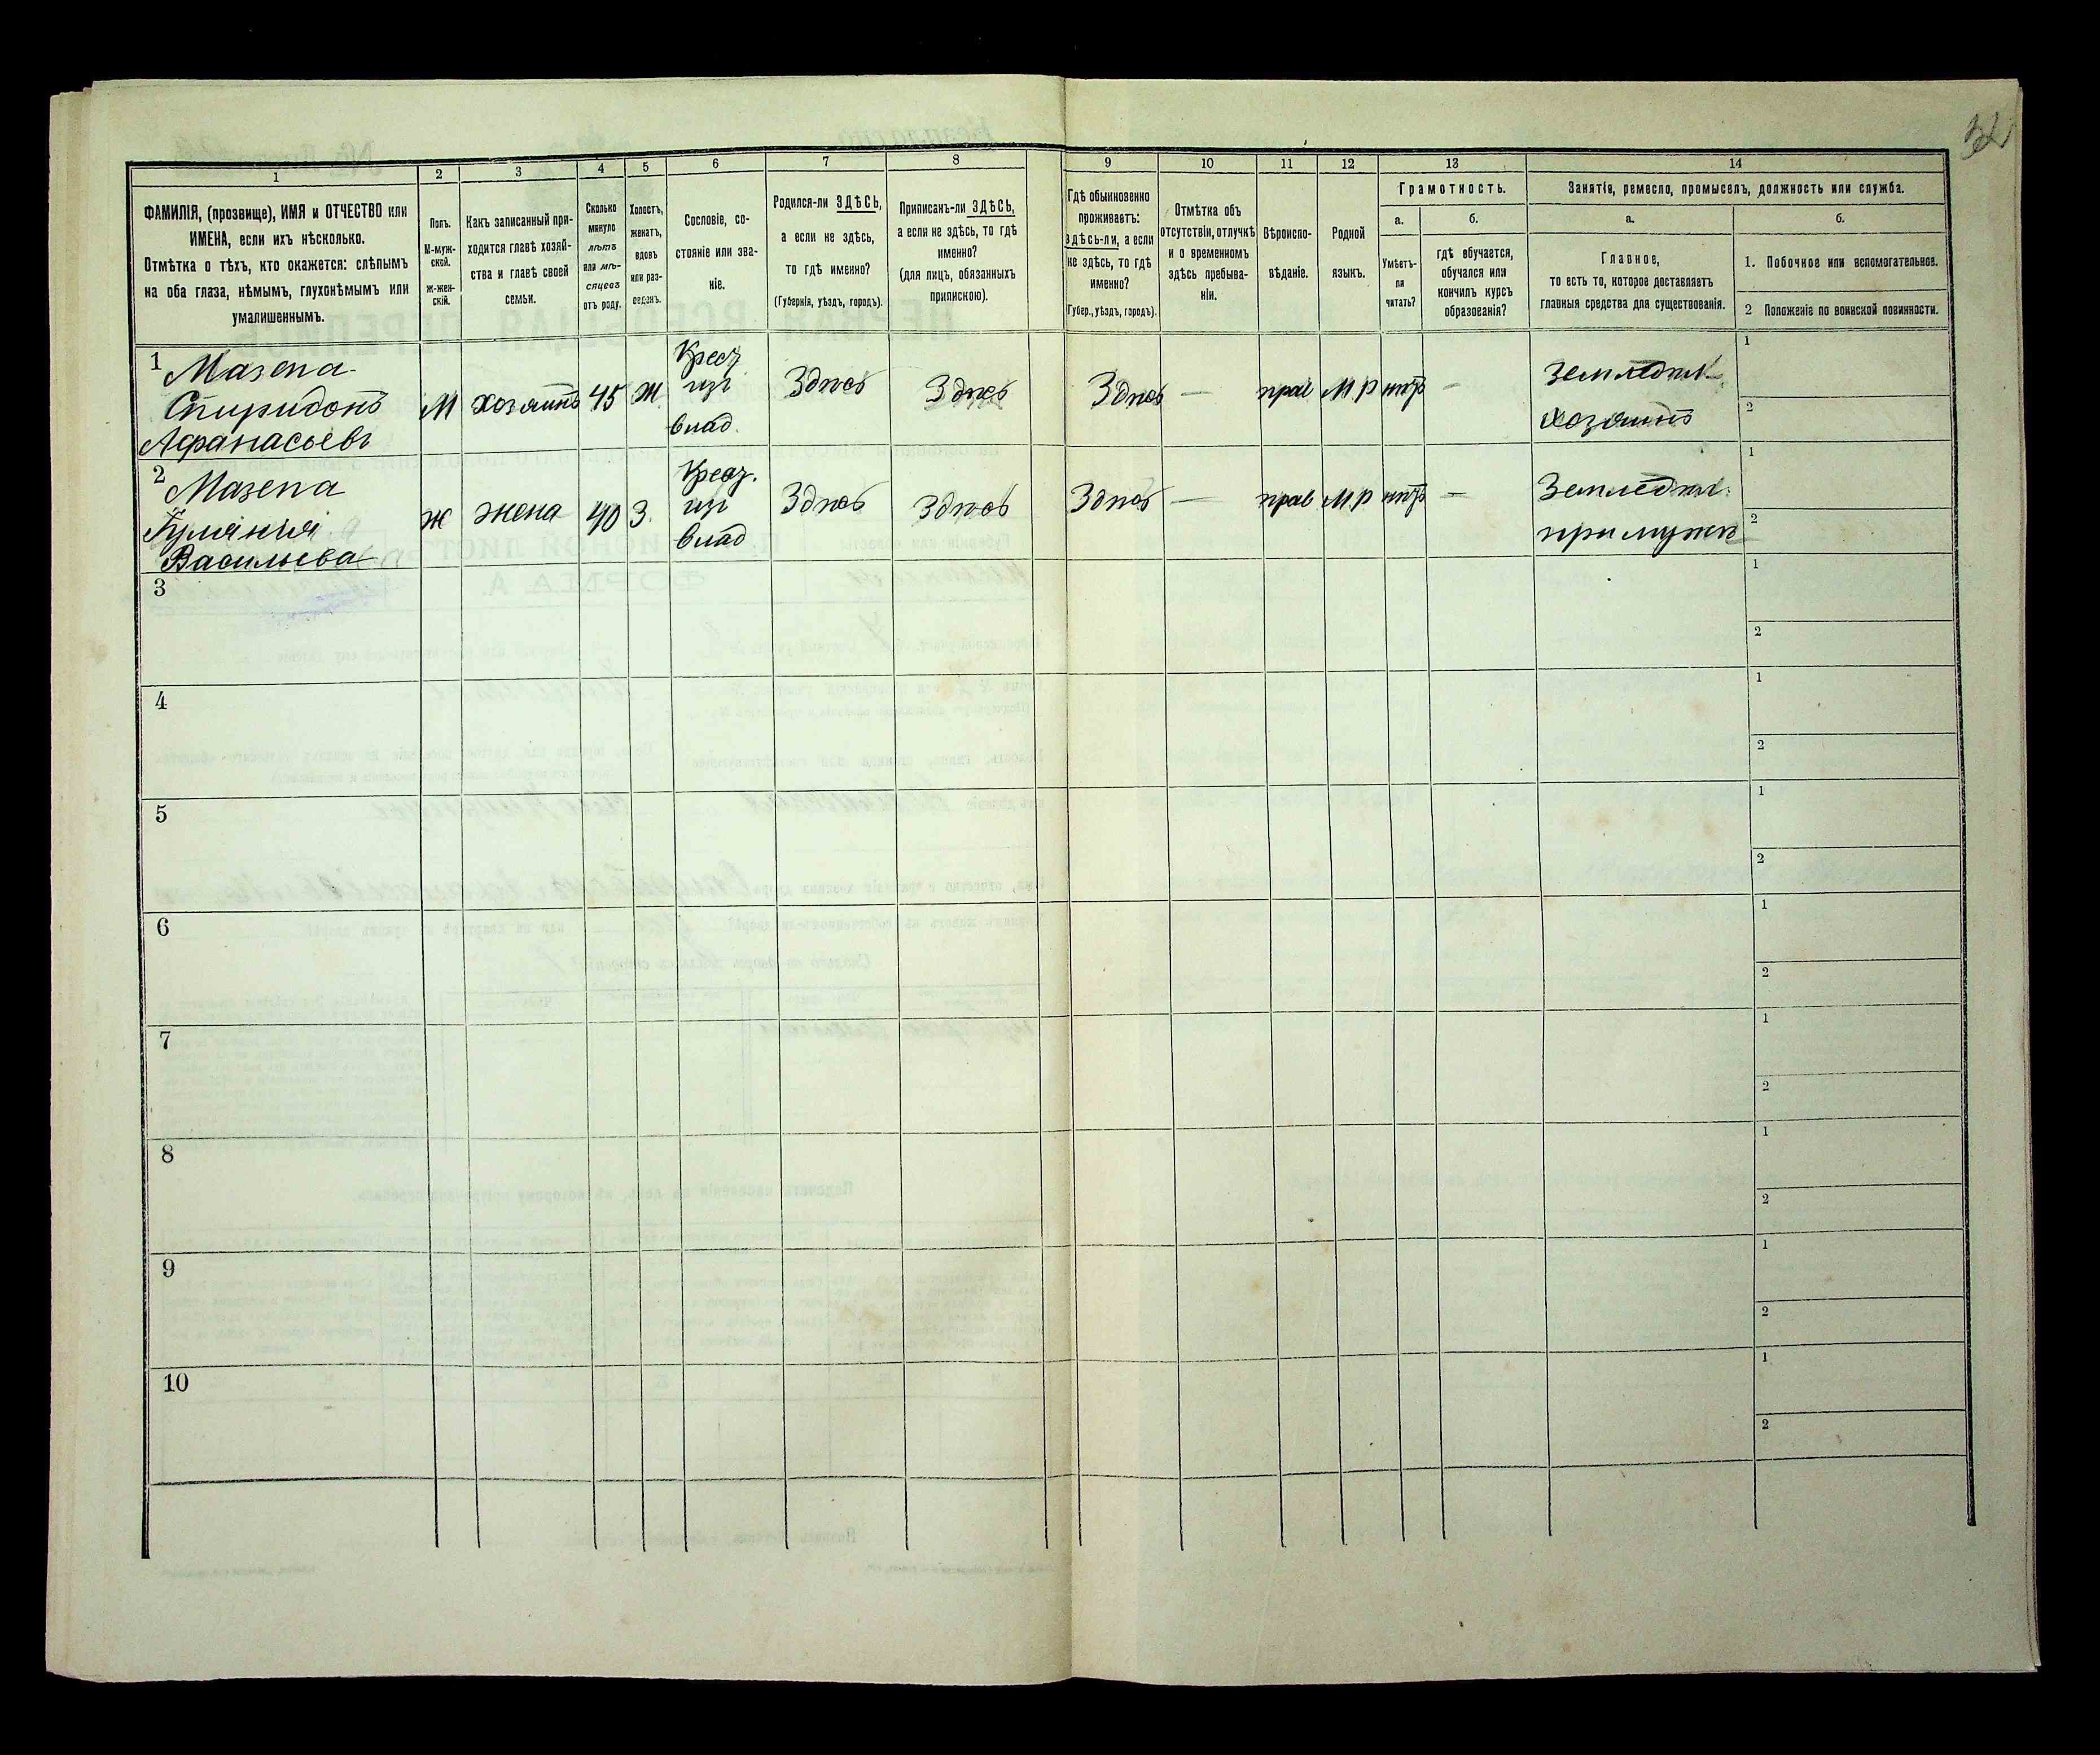 32
1
2
3
4
5
6
7
8
9
10
11
12
13
14
ФАМИЛІЯ, (прозвище), ИМЯ и ОТЧЕСТВО или
ИМЕНА, если ихъ нѣсколько.
Отмѣтка о тѣхъ, кто окажется: слѣпымъ
на оба глаза, нѣмымъ, глухонѣмымъ или
умалишеннымъ.
Полъ.
М-муж-
ской.
Ж-жен-
скій.
Какъ записанный при-
ходится главѣ хозяй-
ства и главѣ своей
семьи.
Сколько
минуло
лѣтъ
или мѣ-
сяцевъ
отъ роду.
Холостъ,
женатъ,
вдовъ
или раз-
веденъ.
Сословіе, со-
стояніе или зва-
ніе.
Родился-ли ЗДѢСЬ,
а если не здѣсь,
то гдѣ именно?
(Губернія, уѣздъ, городъ).
Приписанъ-ли ЗДѢСЬ,
а если не здѣсь, то гдѣ
именно?
(для лицъ, обязанныхъ
припискою).
Гдѣ обыкновенно
проживаетъ:
здѣсь-ли, а если
не здѣсь, то гдѣ
именно?
Губер., уѣздъ, городъ).
Отмѣтка объ
отсутствіи, отлучкѣ
и о временномъ
здѣсь пребыва-
ніи.
Вѣроиспо-
вѣданіе.
Родной
языкъ.
Грамотность.
а.
б.
Умѣетъ-
ли
читать?
гдѣ обучается,
обучался или
кончилъ курсъ
образованія?
Занятія, ремесло, промыселъ, должность или служба.
а.
б.
Главное,
то есть то, которое доставляетъ
главныя средства для существованія.
1. Побочное или вспомогательное.
2 Положеніе по воинской повинности.
1
Мазепа
Спиридонъ
Афанасьевъ
М
хозяинъ
45
Ж
Крест
изъ
влад.
Здѣсь
Здѣсь
Здѣсь
—
прав
М р
нѣтъ
—
Земледѣл.
хозяинъ
1
2
2
Мазепа
Васильева
Ж
жена
40
З.
Крест.
изъ
влад
Здѣсь
Здѣсь
Здѣсь
—
прав
М.р
нѣтъ
—
Земледѣл.
при мужѣ
1
2
3
1
2
4
1
2
5
1
2
6
1
2
7
1
2
8
1
2
9
1
2
10
1
2